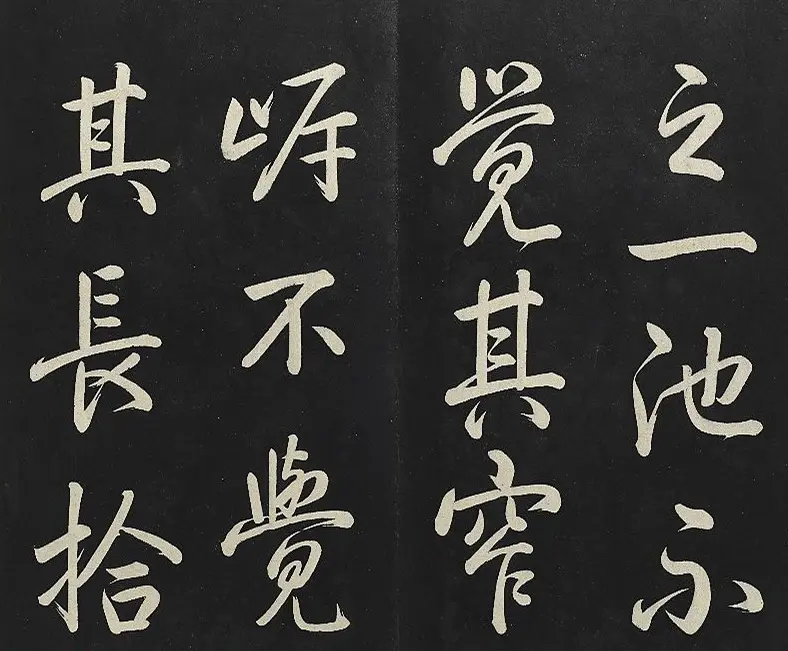 之一池不
覺其窄
岸不覺
其長拾